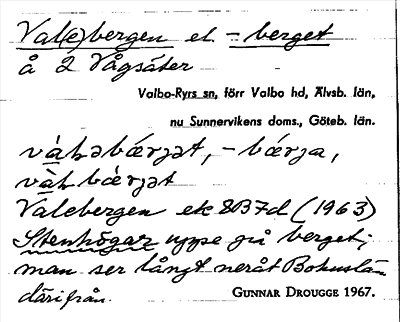 Val(e)bergen el -berget
å 2 Vågsäter
Valbo-Ryrs sn, förr Valbo hd, Älvsb. län,
nu Sunnervikens doms., Göteb. län.
và̀ləbǽrjət, -bǽrja,
và̀lbǽrjət
Valebergen ek 8B7d (1963)
Stenhögar uppe på berget;
man ser långt neråt Bohuslän
därifrån.
GUNNAR DROUGGE 1967.